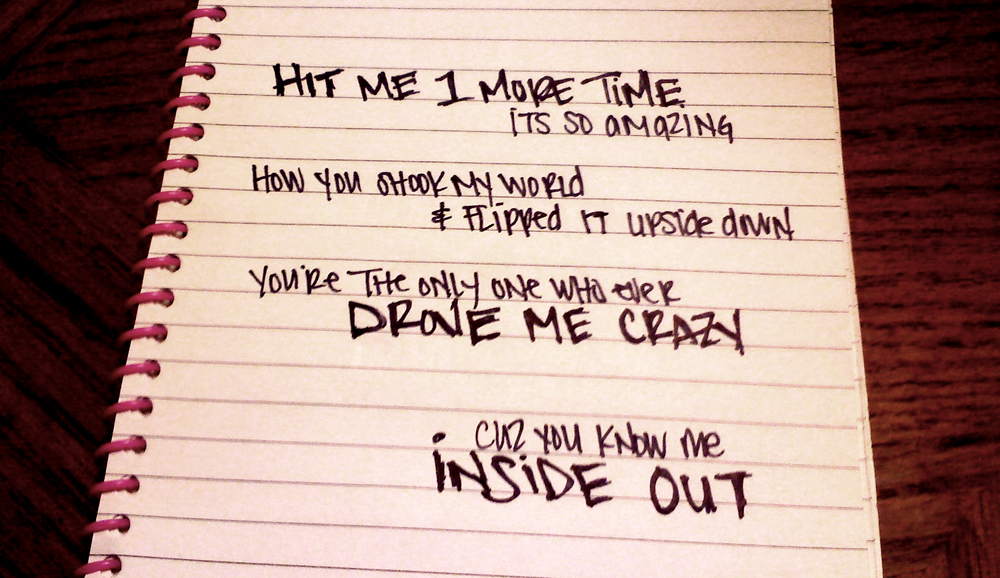 HIT ME 1 MORE TIME
ITS SO AMAZING
HOW YOU SHOOK MY WORLD
& FLIPPED IT UPSIDE DOWN
YOU'RE THE ONLY ONE WHO EVER
DROVE ME CRAZY
CUZ YOU KNOW ME
INSIDE OUT